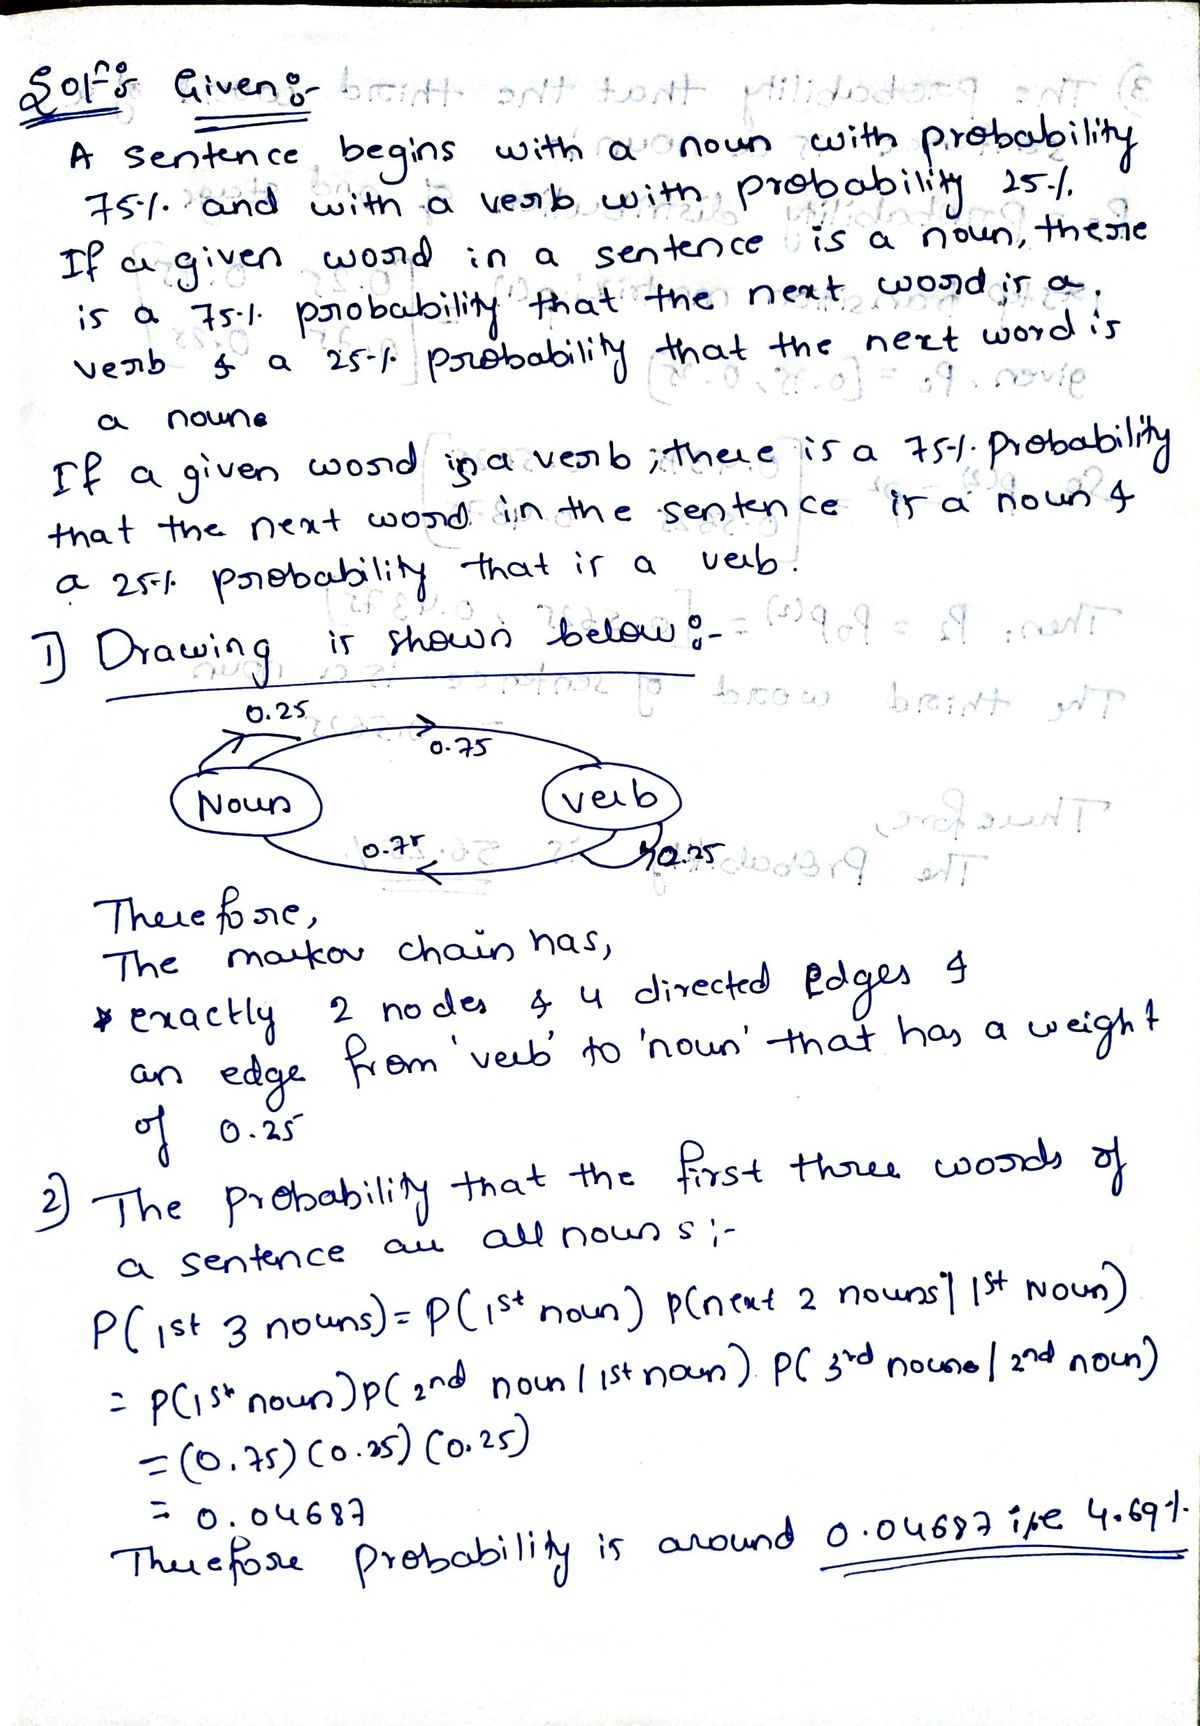 Soln:- Given:-
A sentence begins with a noun with probability
75%. and with a verb with probability 25%.
If a given word in a sentence is a noun, there
is a 75%. probability that the next word is a
verb & a 25%. probability that the next word is
a noun.
If a given word is a verb ; there is a 75%. probability
that the next word in the sentence is a noun &
a 25%. probability that is a verb.
1) Drawing is shown below :-
0.25
0.75
Noun
verb
0.75
0.25
Therefore,
The markov chain has,
* exactly 2 nodes & 4 directed edges &
an edge from 'verb' to 'noun' that has a weight
of 0.25
2) The probability that the first three words of
a sentence are all nouns ;-
P(1st 3 nouns) = P(1st noun) P(next 2 nouns | 1st Noun)
= P(1st noun) P(2nd noun / 1st noun). P(3rd noun / 2nd noun)
= (0.75) (0.25) (0.25)
= 0.04687
Therefore probability is around 0.04687 i.e 4.69%.